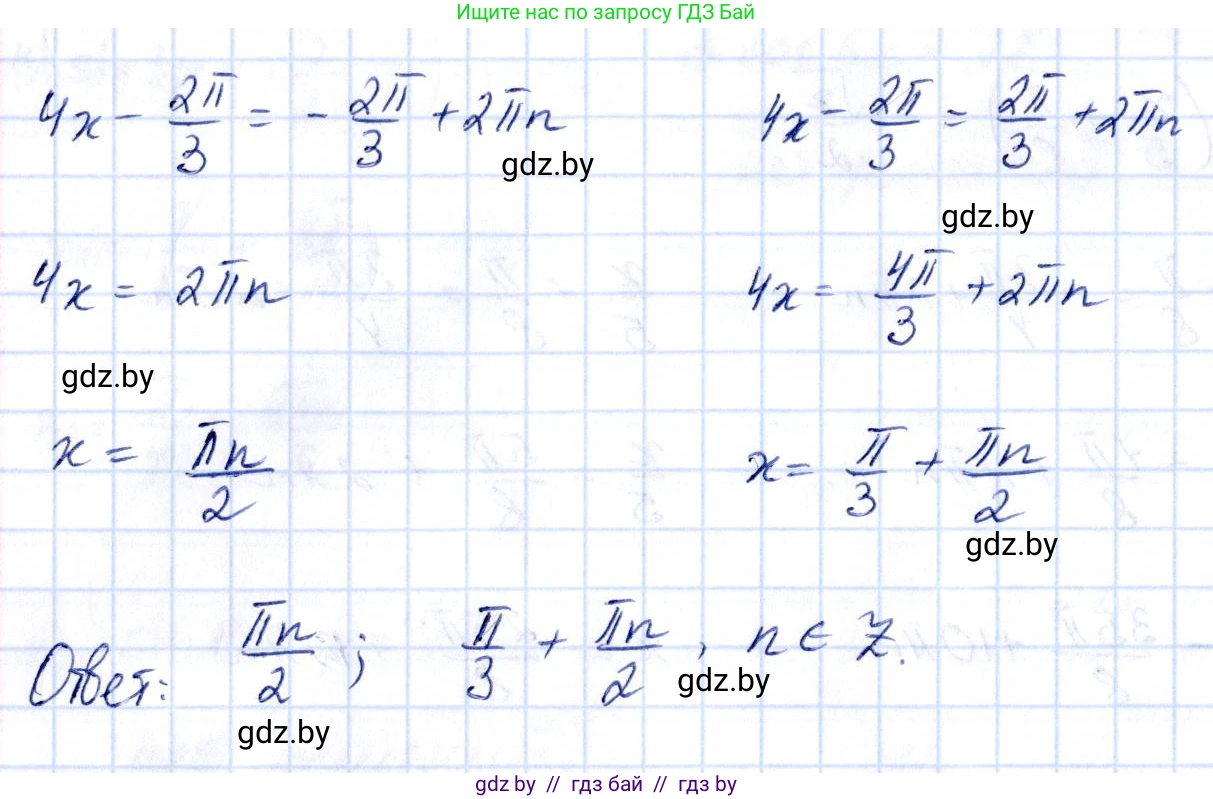 Ищите нас по запросу ГДЗ Бай
4x - 2π/3 = - 2π/3 + 2πn    4x - 2π/3 = 2π/3 + 2πn
gdz.by
gdz.by
4x = 2πn    4x = 4π/3 + 2πn
gdz.by
x = πn/2    x = π/3 + πn/2
gdz.by
Ответ: πn/2 ; π/3 + πn/2 , n ∈ Z.
gdz.by
gdz.by
gdz by // гдз бай // гдз by